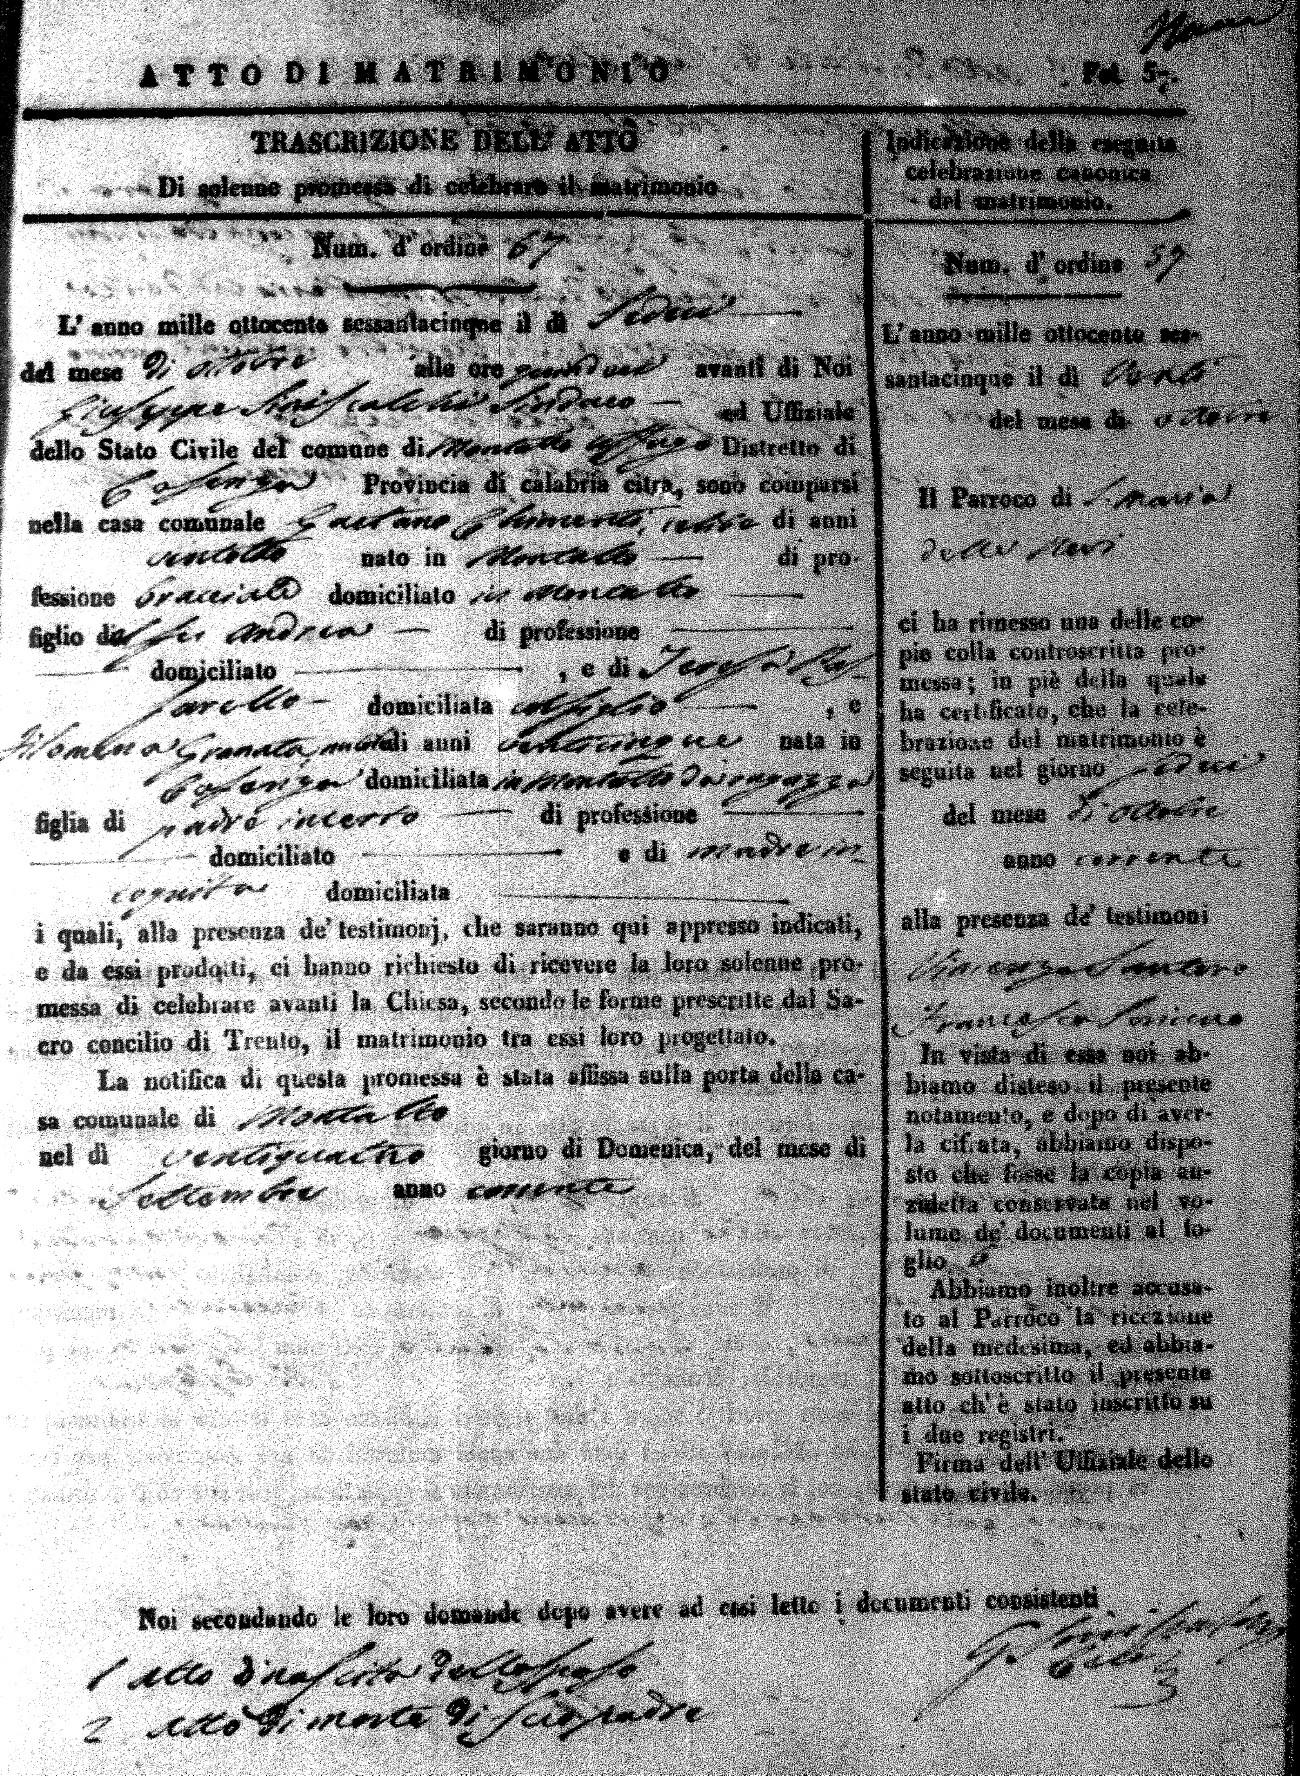 ATTO DI MATRIMONIO
Fol. 57.
TRASCRIZIONE DELL' ATTO
Di solenne promessa di celebrare il matrimonio
Num. d' ordine 67
L' anno mille ottocento sessantacinque il dì Sedici
del mese di ottobre alle ore avanti di Noi
Giuseppe Sindaco ed Uffiziale
dello Stato Civile del comune di Montalto Uffugo Distretto di
Cosenza Provincia di calabria citra, sono comparsi
nella casa comunale Gaetano Chimenti, di anni
ventotto nato in Montalto di pro-
fessione bracciale domiciliato in Montalto
figlio di fu Andrea di professione
domiciliato , e di Teresa
domiciliata col figlio , e
Filomena Granata, di anni venticinque nata in
Cosenza domiciliata in Montalto da ragazza
figlia di padre incerto di professione
domiciliato e di madre in-
cognita domiciliata
i quali, alla presenza de' testimonj, che saranno qui appresso indicati,
e da essi prodotti, ci hanno richiesto di ricevere la loro solenne pro-
messa di celebrare avanti la Chiesa, secondo le forme prescritte dal Sa-
cro concilio di Trento, il matrimonio tra essi loro progettato.
La notifica di questa promessa è stata affissa sulla porta della ca-
sa comunale di Montalto
nel dì ventiquattro giorno di Domenica, del mese di
Settembre anno corrente
Noi secondando le loro domande dopo avere ad essi letto i documenti consistenti
1 Atto di nascita dello sposo
2 Atto di morte di suo padre
Indicazione della eseguita
celebrazione canonica
del matrimonio.
Num. d' ordine 59
L' anno mille ottocento ses-
santacinque il di Venti
del mese di ottobre
Il Parroco di S. Maria
della Neve
ci ha rimesso una delle co-
pie colla controscritta pro-
messa; in piè della quale
ha certificato, che la cele-
brazione del matrimonio è
seguita nel giorno Sedici
del mese di ottobre
anno corrente
alla presenza de' testimoni
Vincenzo Santoro
Francesco
In vista di essa noi ab-
biamo disteso il presente
notamento, e dopo di aver-
la cifrata, abbiamo dispo-
sto che fosse la copia an-
zidetta conservata nel vo-
lume de' documenti al fo-
glio
Abbiamo inoltre accusa-
to al Parroco la ricezione
della medesima, ed abbia-
mo sottoscritto il presente
atto ch' è stato inscritto su
i due registri.
Firma dell' Uffiziale dello
stato civile.